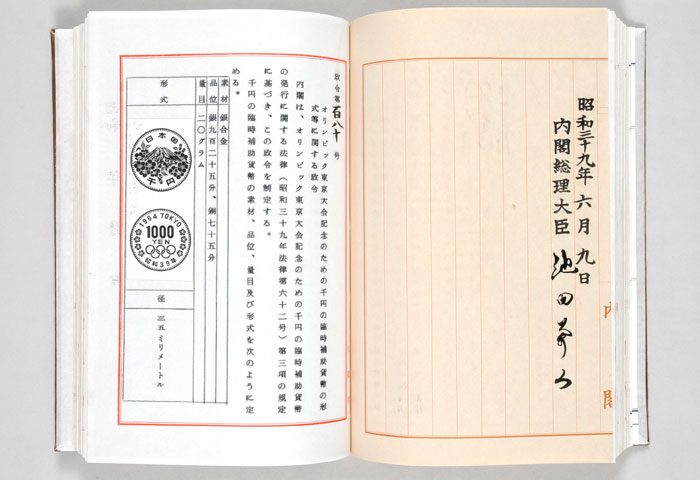 内閣
昭和三十九年六月九日
内閣総理大臣 池田勇人
政令第百八十号
オリンピック東京大会記念のための千円の臨時補助貨幣の形
式等に関する政令
内閣は、オリンピック東京大会記念のための千円の臨時補助貨幣
の発行に関する法律(昭和三十九年法律第六十二号)第三項の規定
に基づき、この政令を制定する。
千円の臨時補助貨幣の素材、品位、量目及び形式を次のように定
める。
素材 銀合金
品位 銀九百二十五分、銅七十五分
量目 二〇グラム
形式
日本国
千円
1964 TOKYO
1000
YEN
昭和39年
径 三五ミリメートル